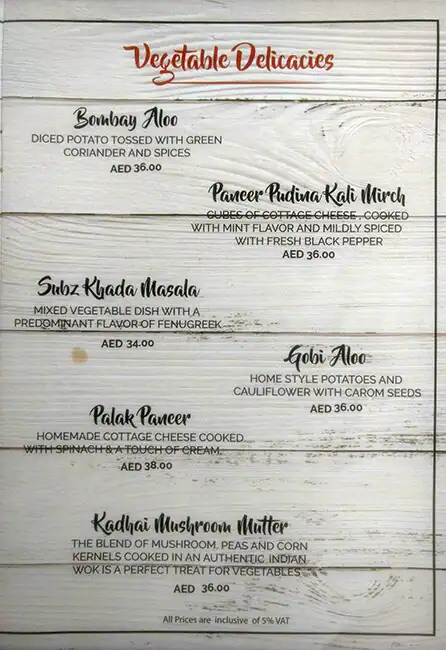 Vegetable Delicacies
Bombay Aloo
DICED POTATO TOSSED WITH GREEN
CORIANDER AND SPICES
AED 36.00
Paneer Pudina Kali Mirch
CUBES OF COTTAGE CHEESE , COOKED
WITH MINT FLAVOR AND MILDLY SPICED
WITH FRESH BLACK PEPPER
AED 36.00
Subz Khada Masala
MIXED VEGETABLE DISH WITH A
PREDOMINANT FLAVOR OF FENUGREEK
AED 34.00
Gobi Aloo
HOME STYLE POTATOES AND
CAULIFLOWER WITH CAROM SEEDS
AED 36.00
Palak Paneer
HOMEMADE COTTAGE CHEESE COOKED
WITH SPINACH & A TOUCH OF CREAM.
AED 38.00
Kadhai Mushroom Mutter
THE BLEND OF MUSHROOM, PEAS AND CORN
KERNELS COOKED IN AN AUTHENTIC INDIAN
WOK IS A PERFECT TREAT FOR VEGETABLES
AED 36.00
All Prices are inclusive of 5% VAT